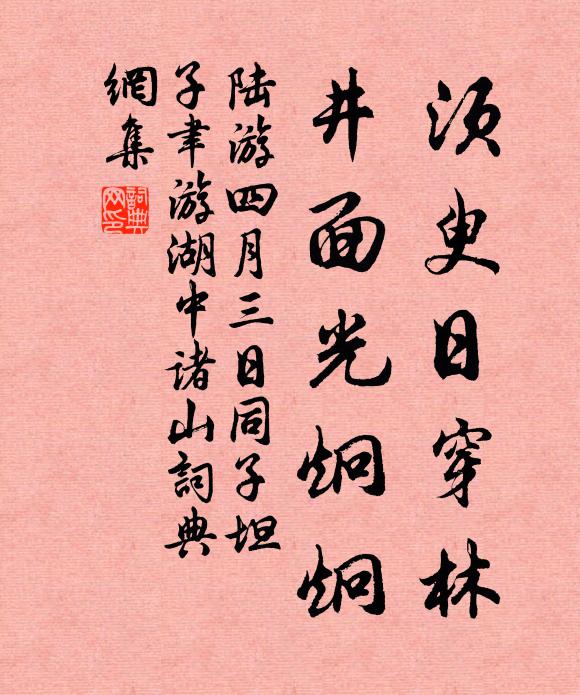 须叟日穿林
井面光炯炯
陆游四月三日同子坦
子聿游湖中诸山詞典
網集
詞典網印